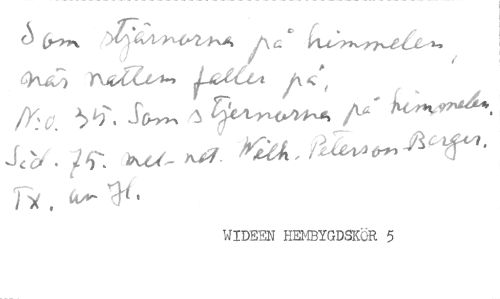 Som stjärnorna på himmelen,
när natten faller på,
N:o. 35. Som stjernorna på himmelen.
Sid. 75. mel- not. Wilh. Peterson-Berger.
Tx. av H.
WIDEEN HEMBYGDSKÖR 5